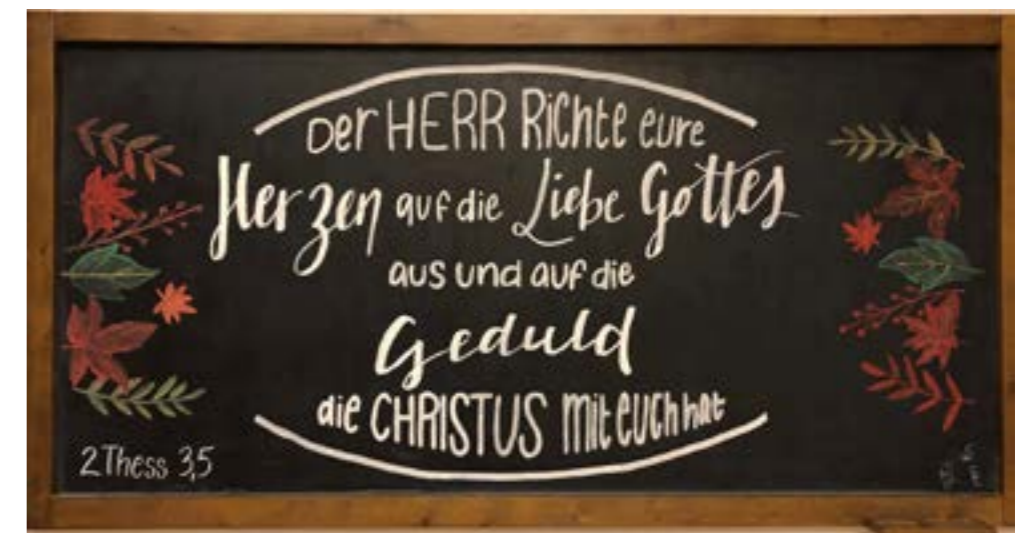 Der HERR Richte eure
Herzen auf die Liebe Gottes
aus und auf die
Geduld
die CHRISTUS mit euch hat
2.Thess 3,5